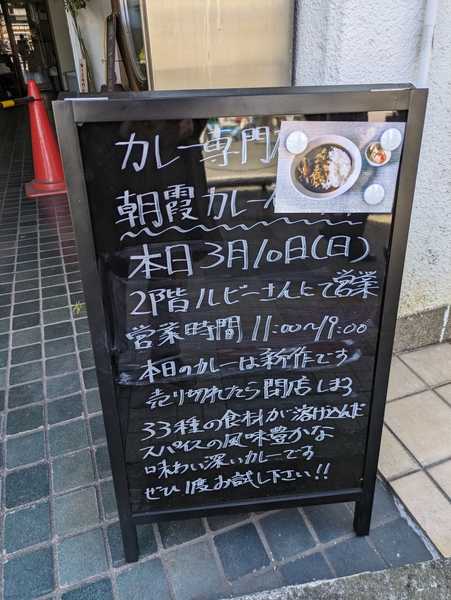 カレー専門
朝霞カレー
本日3月10日(日)
2階ルビーさんにて営業
営業時間 11:00〜19:00
本日のカレーは新作です
売り切れたら閉店しまう
33種の食材が溶け込んだ
スパイスの風味豊かな
味わい深いカレーです
ぜひ1度お試し下さい!!